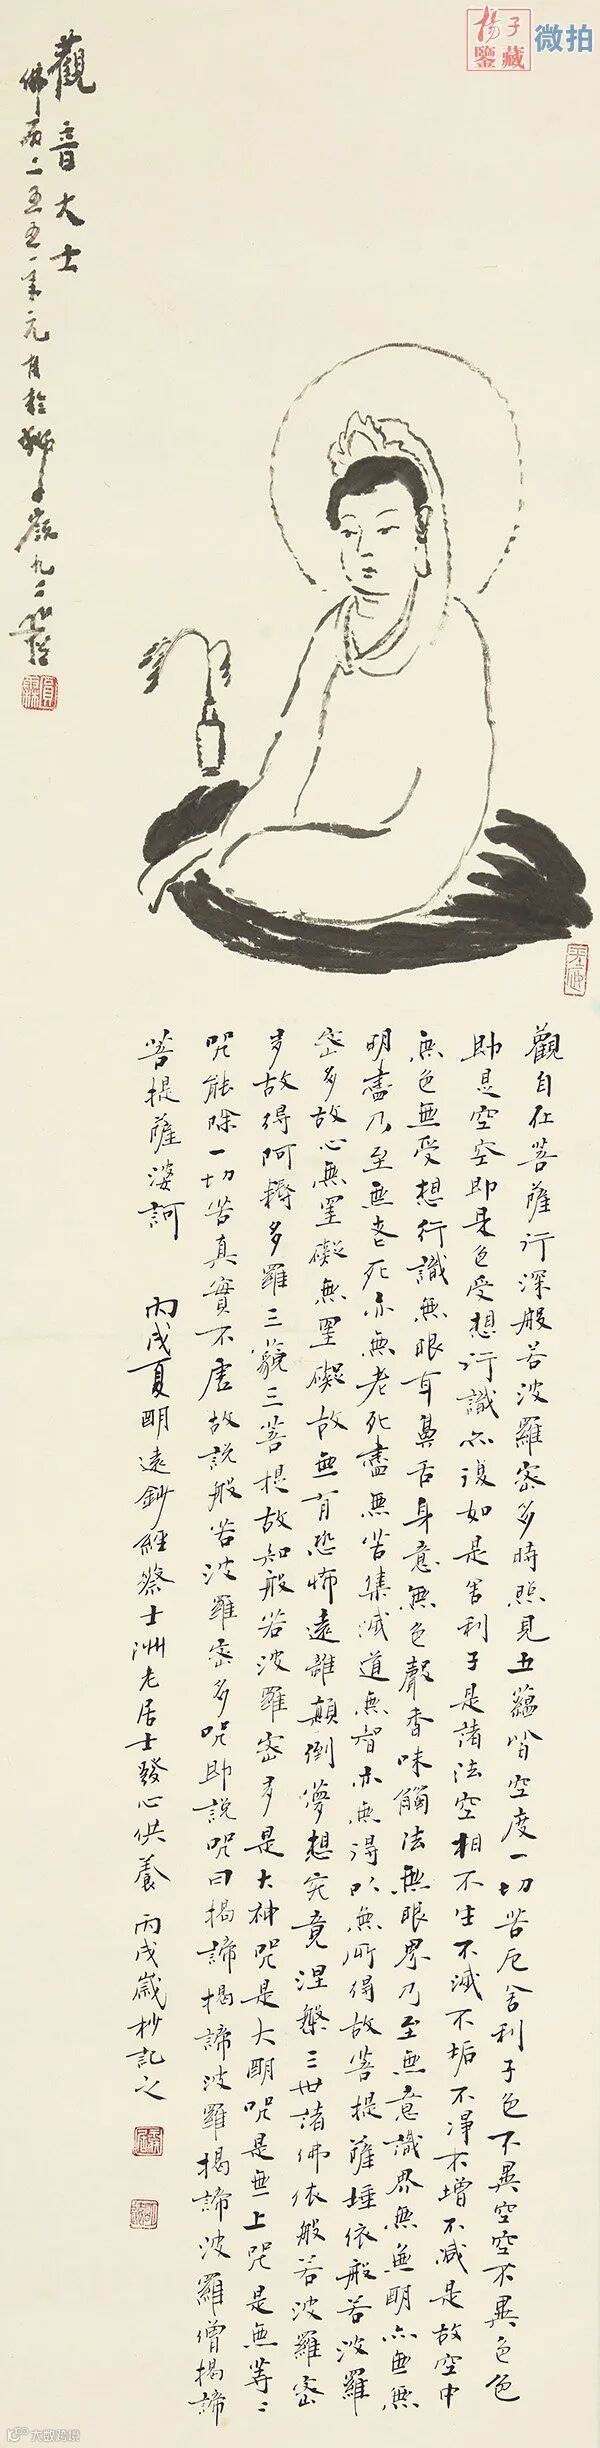 揚子
鑒藏
微拍
觀音大士
佛曆二五五一年元月於獅子窟九二叟
觀自在菩薩行深般若波羅密多時照見五蘊皆空度一切苦厄舍利子色不異空空不異色色
即是空空即是色受想行識亦復如是舍利子是諸法空相不生不滅不垢不淨不增不減是故空中
無色無受想行識無眼耳鼻舌身意無色聲香味觸法無眼界乃至無意識界無無明亦無無
明盡乃至無老死亦無老死盡無苦集滅道無智亦無得以無所得故菩提薩埵依般若波羅
密多故心無罣礙無罣礙故無有恐怖遠離顛倒夢想究竟涅槃三世諸佛依般若波羅密
多故得阿耨多羅三藐三菩提故知般若波羅密多是大神咒是大明咒是無上咒是無等等
咒能除一切苦真實不虛故說般若波羅密多咒即說咒曰揭諦揭諦波羅揭諦波羅僧揭諦
菩提薩婆訶
丙戌夏明遠鈔經蔡士洲老居士發心供養丙戌歲杪記之
大数跨境